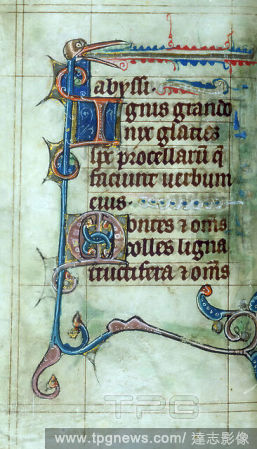 abyssi.
Ignis grando
nix glacies
sps procellarũ q̃
faciunt verbum
eius.
Montes ⁊ om̃s
colles ligna
fructifera ⁊ om̃s
TPG
www.tpgnews.com/ 達志影像